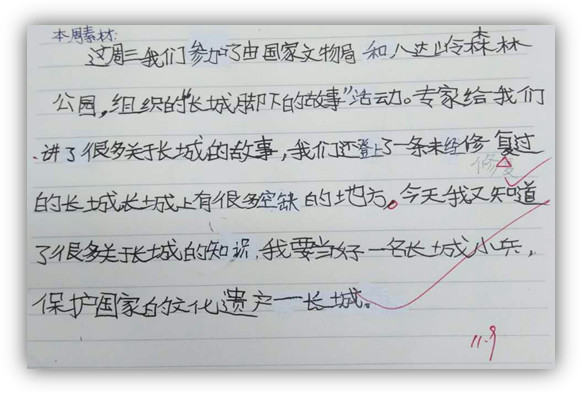 本周素材:
这周三我们参加了由国家文物局和八达岭森林
公园,组织的“长城脚下的故事”活动。专家给我们
讲了很多关于长城的故事,我们还登上了一条未经修复过
修复
的长城长城上有很多空缺的地方。今天我又知道
了很多关于长城的知识,我要当好一名长城小兵,
保护国家的文化遗产一长城。
11.9